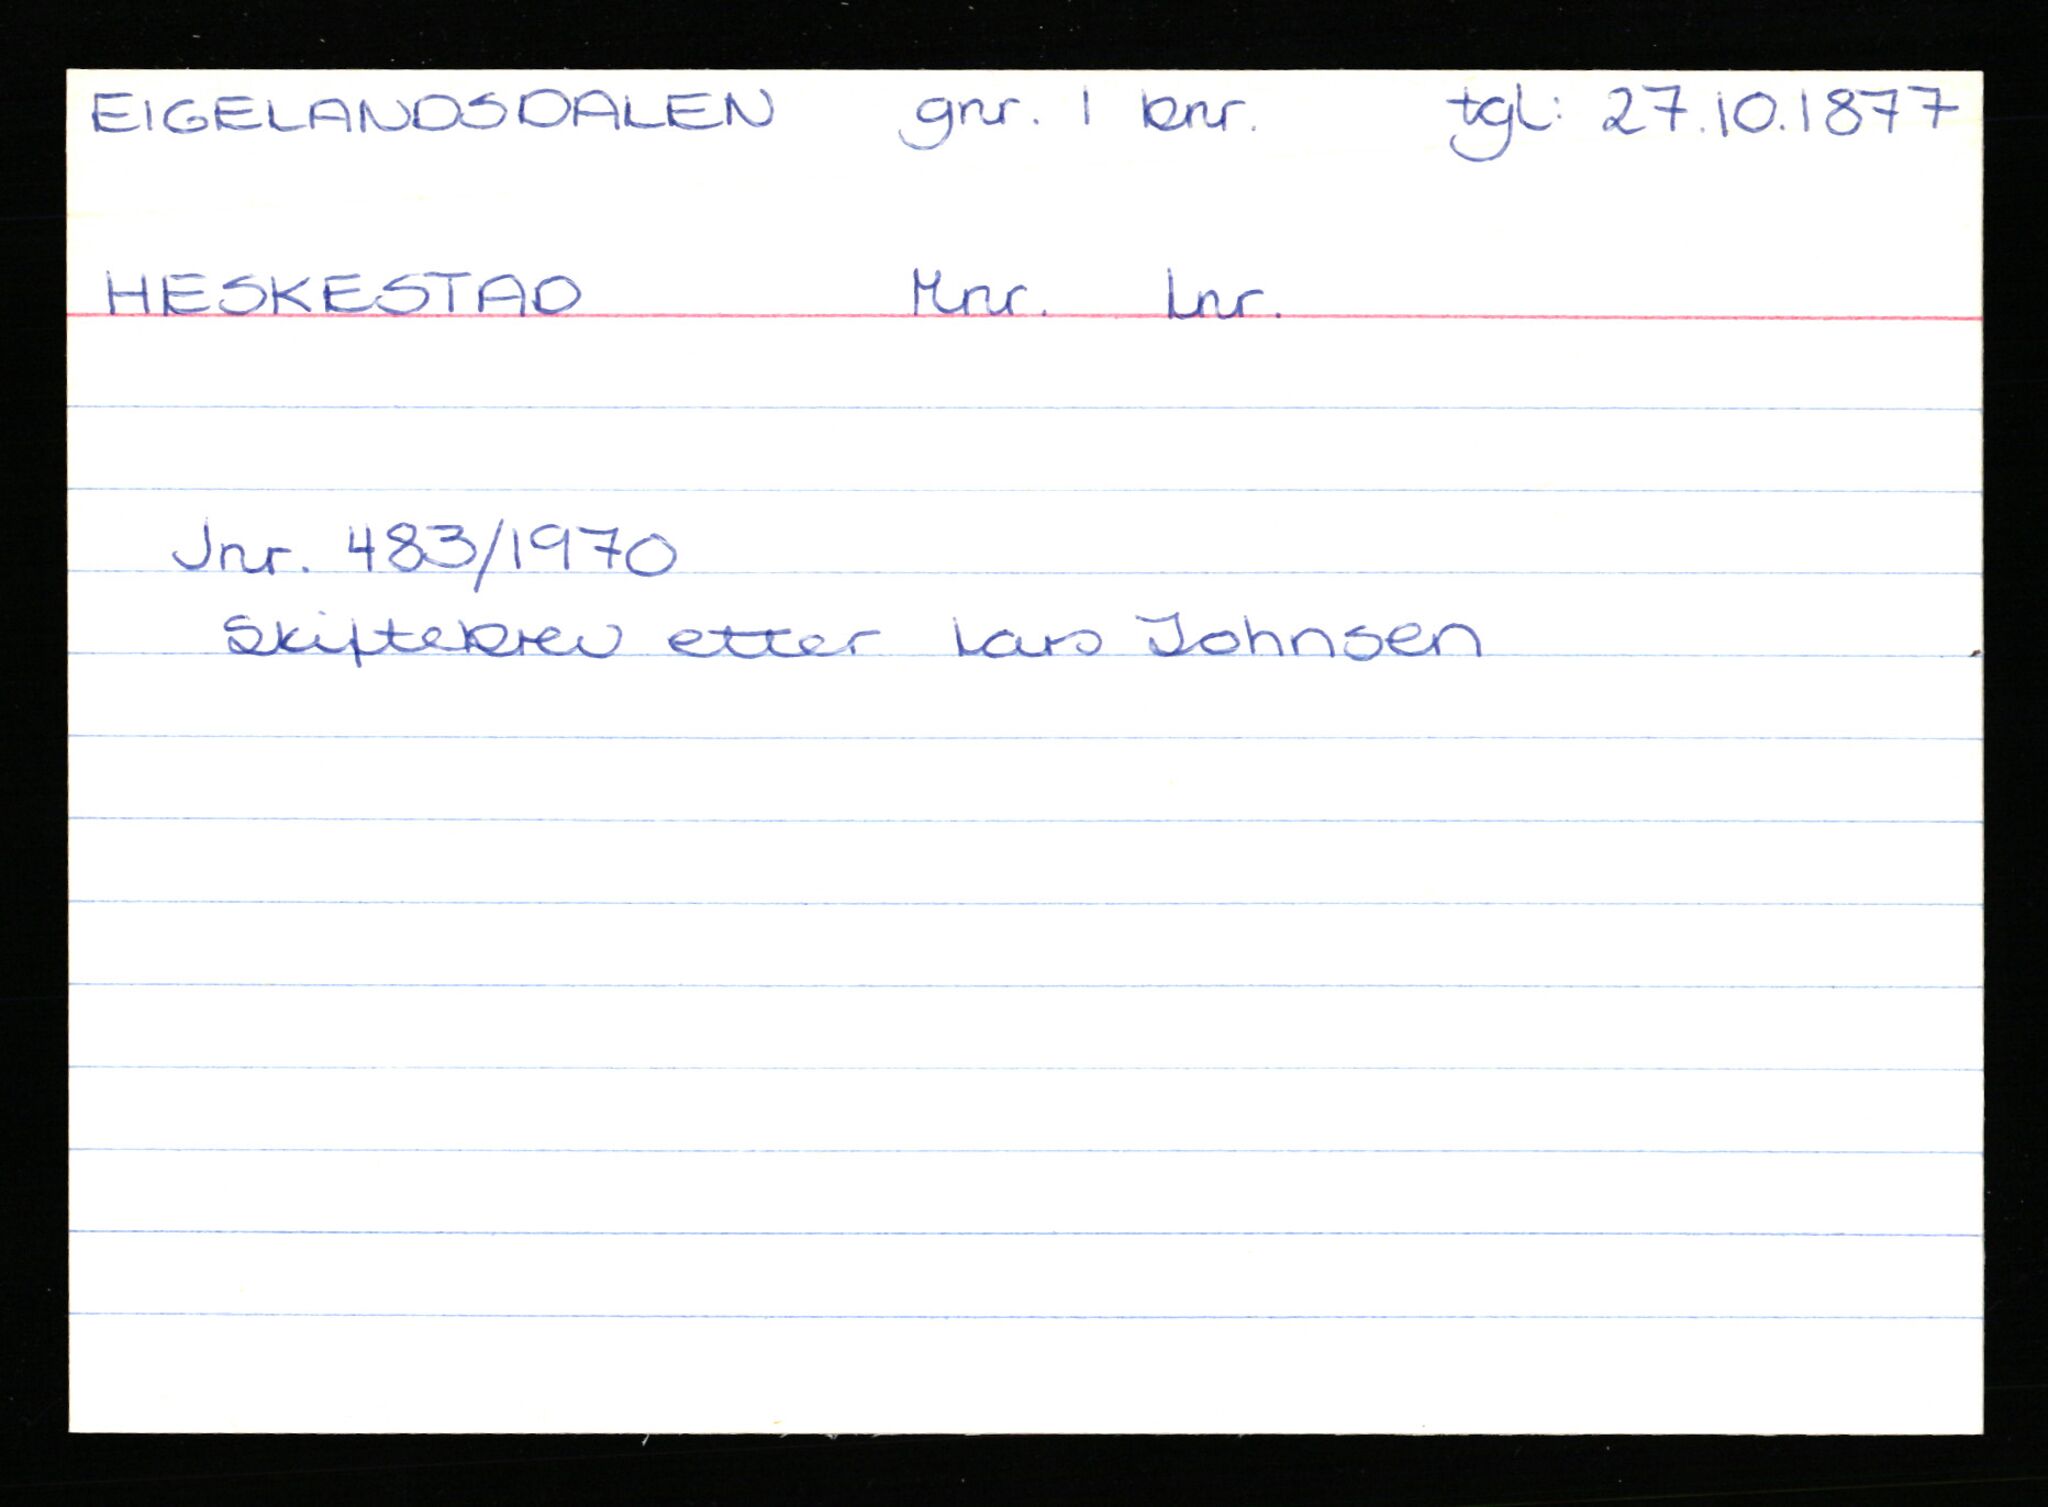 EIGELANDSDALEN gnr. 1 bnr. tgl: 27.10.1877
HESKESTAD Mnr. Lnr.
Jnr. 483/1970
Skiftebrev etter Lars Johnsen